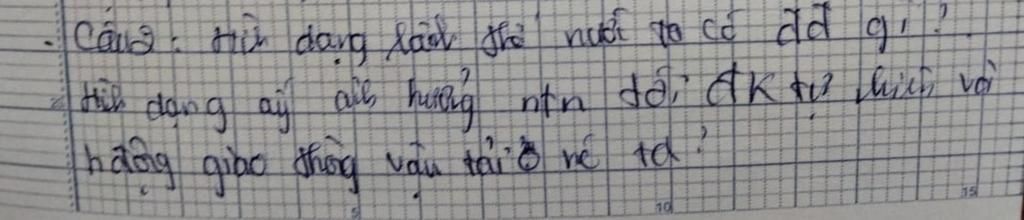 - Câu 3: Hìh dạng lãnh thổ nước ta có đđ gì?
Hìh dạng ấy ảh hưởng ntn đối đk tự nhiên với
hđộng giao thông vận tải ở nc ta?